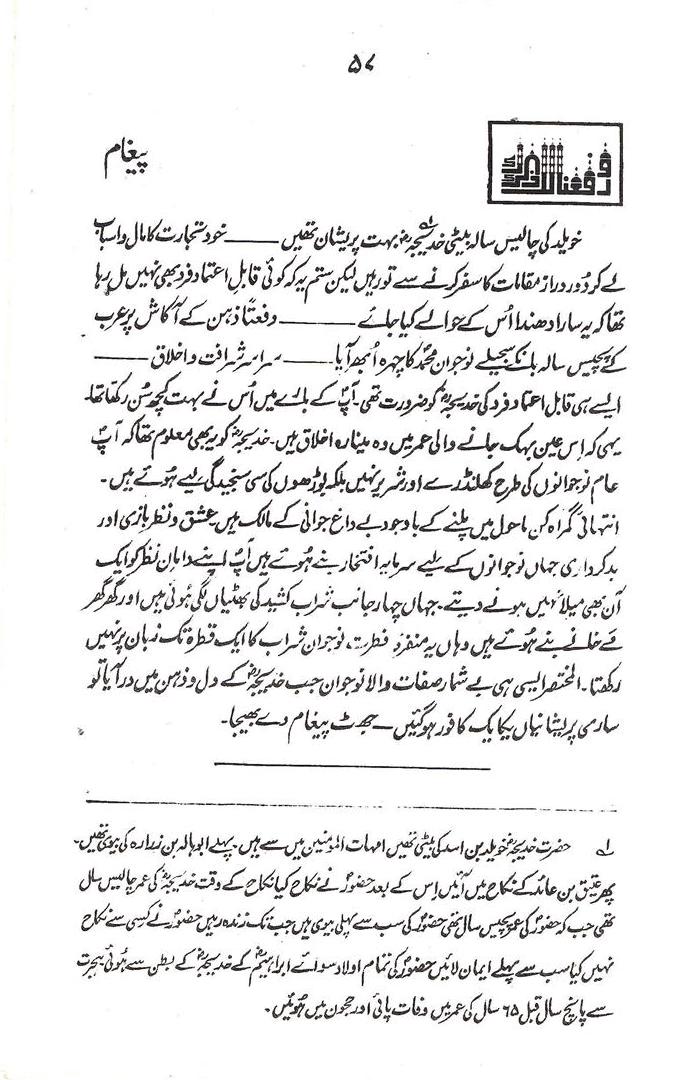 ۵۷
ورفعنا لک ذکرک
پیغام
خویلد کی چالیس سالہ بیٹی خدیجہؓ۱ بہت پریشان تھیں ——— خود تجارت کا مال و اسباب
لے کر دُور دراز مقامات کا سفر کرنے سے تو رہیں لیکن ستم یہ کہ کوئی قابلِ اعتماد فرد بھی نہیں مل رہا
تھا کہ یہ سارا دھندا اُس کے حوالے کیا جائے ——— دفعتاً ذہن کے آکاش پر عرب
کے پچیس سالہ بانکے سجیلے نوجوان محمدؐ کا چہرہ اُبھر آیا ——— سراسر شرافت و اخلاق ———
ایسے ہی قابل اعتماد فرد کی خدیجہؓ کو ضرورت تھی۔ آپؐ کے بارے میں اُس نے بہت کچھ سُن رکھا تھا۔
یہی کہ اِس عین بہک جانے والی عمر میں وہ مینارہ اخلاق ہیں۔ خدیجہؓ کو یہ بھی معلوم تھا کہ آپؐ
عام نوجوانوں کی طرح کھلنڈرے اور شریر نہیں بلکہ بوڑھوں کی سی سنجیدگی لیے ہوئے ہیں۔
انتہائی گمراہ کن ماحول میں پلنے کے باوجود بے داغ جوانی کے مالک ہیں عشق و نظر بازی اور
بدکرداری جہاں نوجوانوں کے لیے سرمایہ افتخار بنے ہوئے ہیں آپؐ اپنے دامانِ نظر کو ایک
آن بھی میلا نہیں ہونے دیتے۔ جہاں چہار جانب شراب کشید کی بھٹیاں لگی ہوئی ہیں اور گھر گھر
مے خانے بنے ہوئے ہیں وہاں یہ منفرد فطرت نوجوان شراب کا ایک قطرہ تک زبان پر نہیں
رکھتا۔ المختصر ایسی ہی بے شمار صفات والا نوجوان جب خدیجہؓ کے دل و ذہن میں در آیا تو
ساری پریشانیاں یکایک کافور ہوگئیں — جھٹ پیغام دے بھیجا۔
۱ حضرت خدیجہؓ خویلد بن اسد کی بیٹی تھیں امہات المؤمنین میں سے ہیں۔ پہلے ابوہالہ بن زرارہ کی بیوی تھیں۔
پھر عتیق بن عائد کے نکاح میں آئیں اِس کے بعد حضورؐ نے نکاح کیا نکاح کے وقت خدیجہؓ کی عمر چالیس سال
تھی جب کہ حضورؐ کی عمر پچیس سال تھی حضورؐ کی سب سے پہلی بیوی ہیں جب تک زندہ رہیں حضورؐ نے کسی سے نکاح
نہیں کیا سب سے پہلے ایمان لائیں حضورؐ کی تمام اولاد سوائے ابراہیمؓ کے خدیجہؓ کے بطن سے ہوئی ہجرت
سے پانچ سال قبل ۶۵ سال کی عمر میں وفات پائی اور حجون میں ہوئیں۔